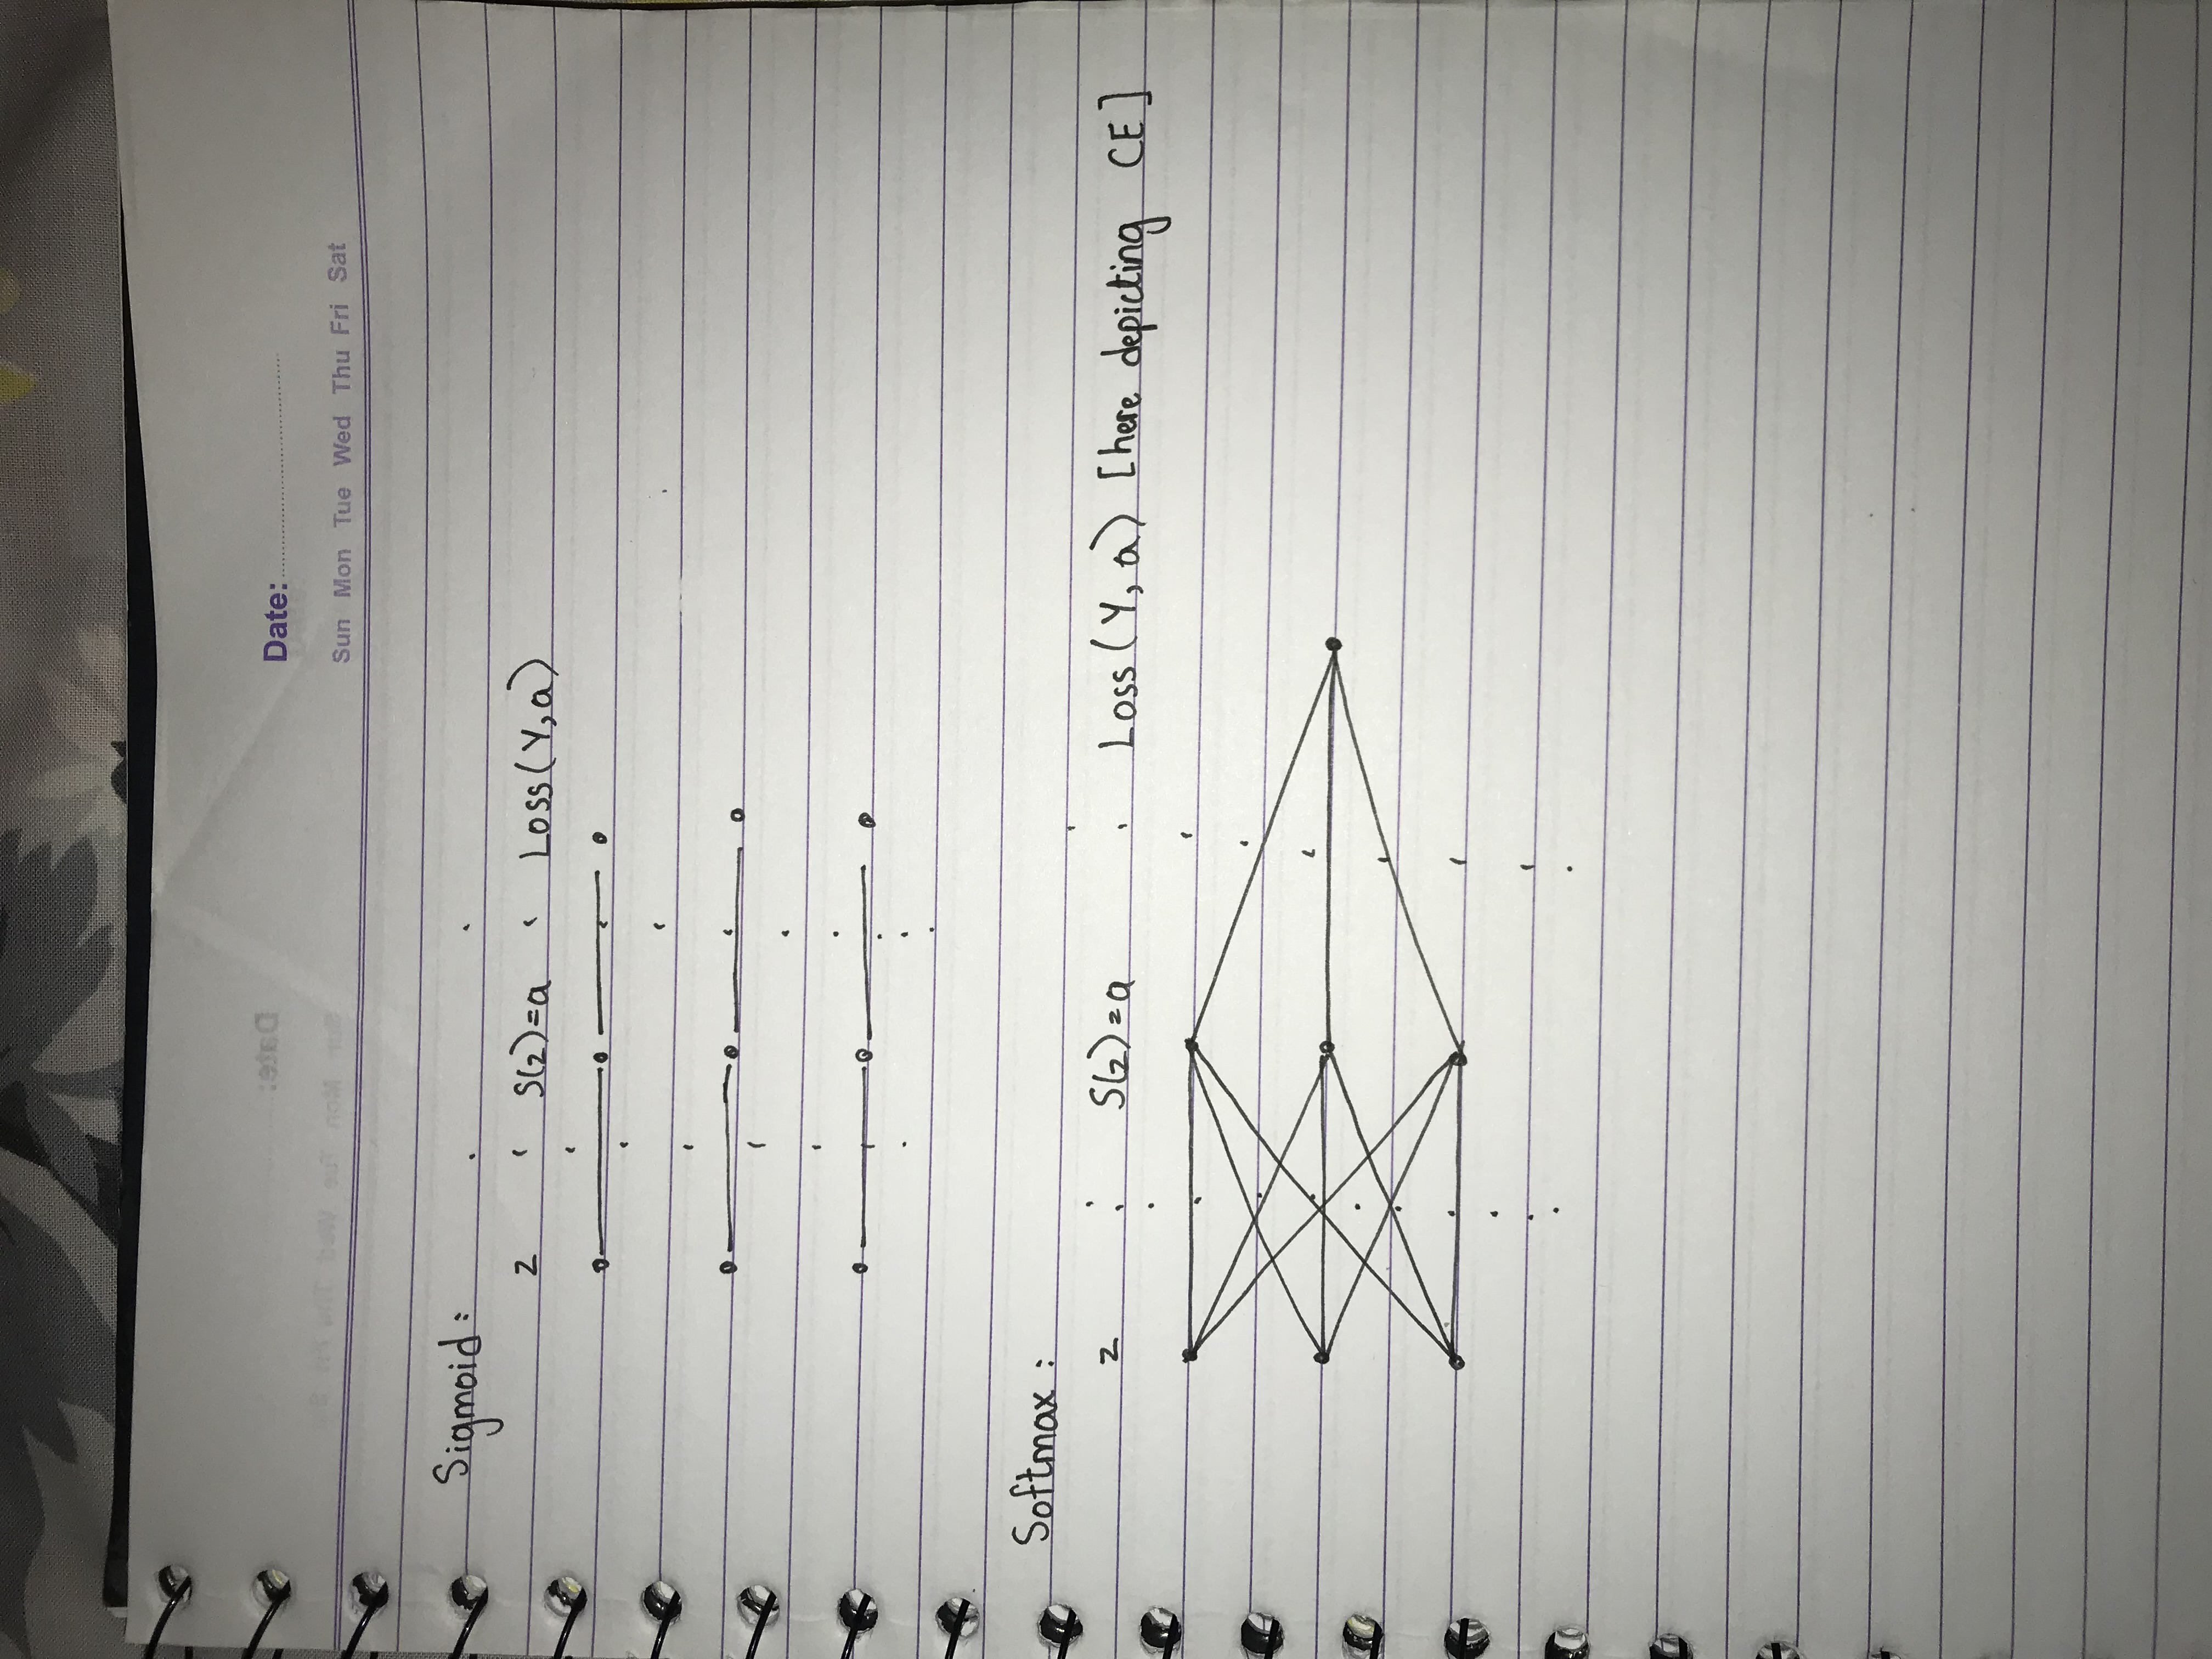 Date:
Sun Mon Tue Wed Thu Fri Sat
Sigmoid:
z S(z)=a Loss(Y,a)
Softmax:
z S(z)=a Loss(Y,a) [here depicting CE]